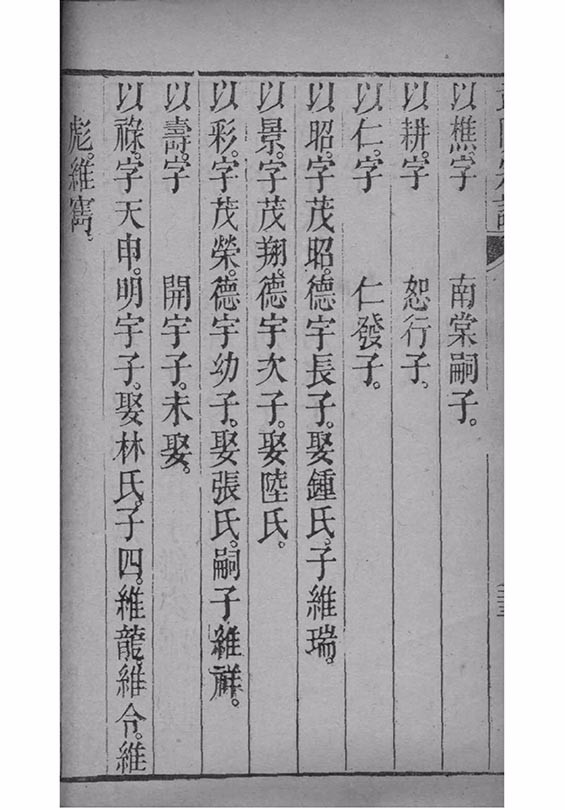 以樵。字　　南棠嗣子。
以耕。字　　恕行子。
以仁。字　　仁發子。
以昭。字茂昭。德宇長子。娶鍾氏。子維瑞。
以景。字茂翔。德宇次子。娶陸氏。
以彩。字茂榮。德宇幼子。娶張氏。嗣子維祥。
以壽。字　　開宇子。未娶。
以祿。字天申。明宇子。娶林氏。子四。維龍。維令。維
彪。維寯。